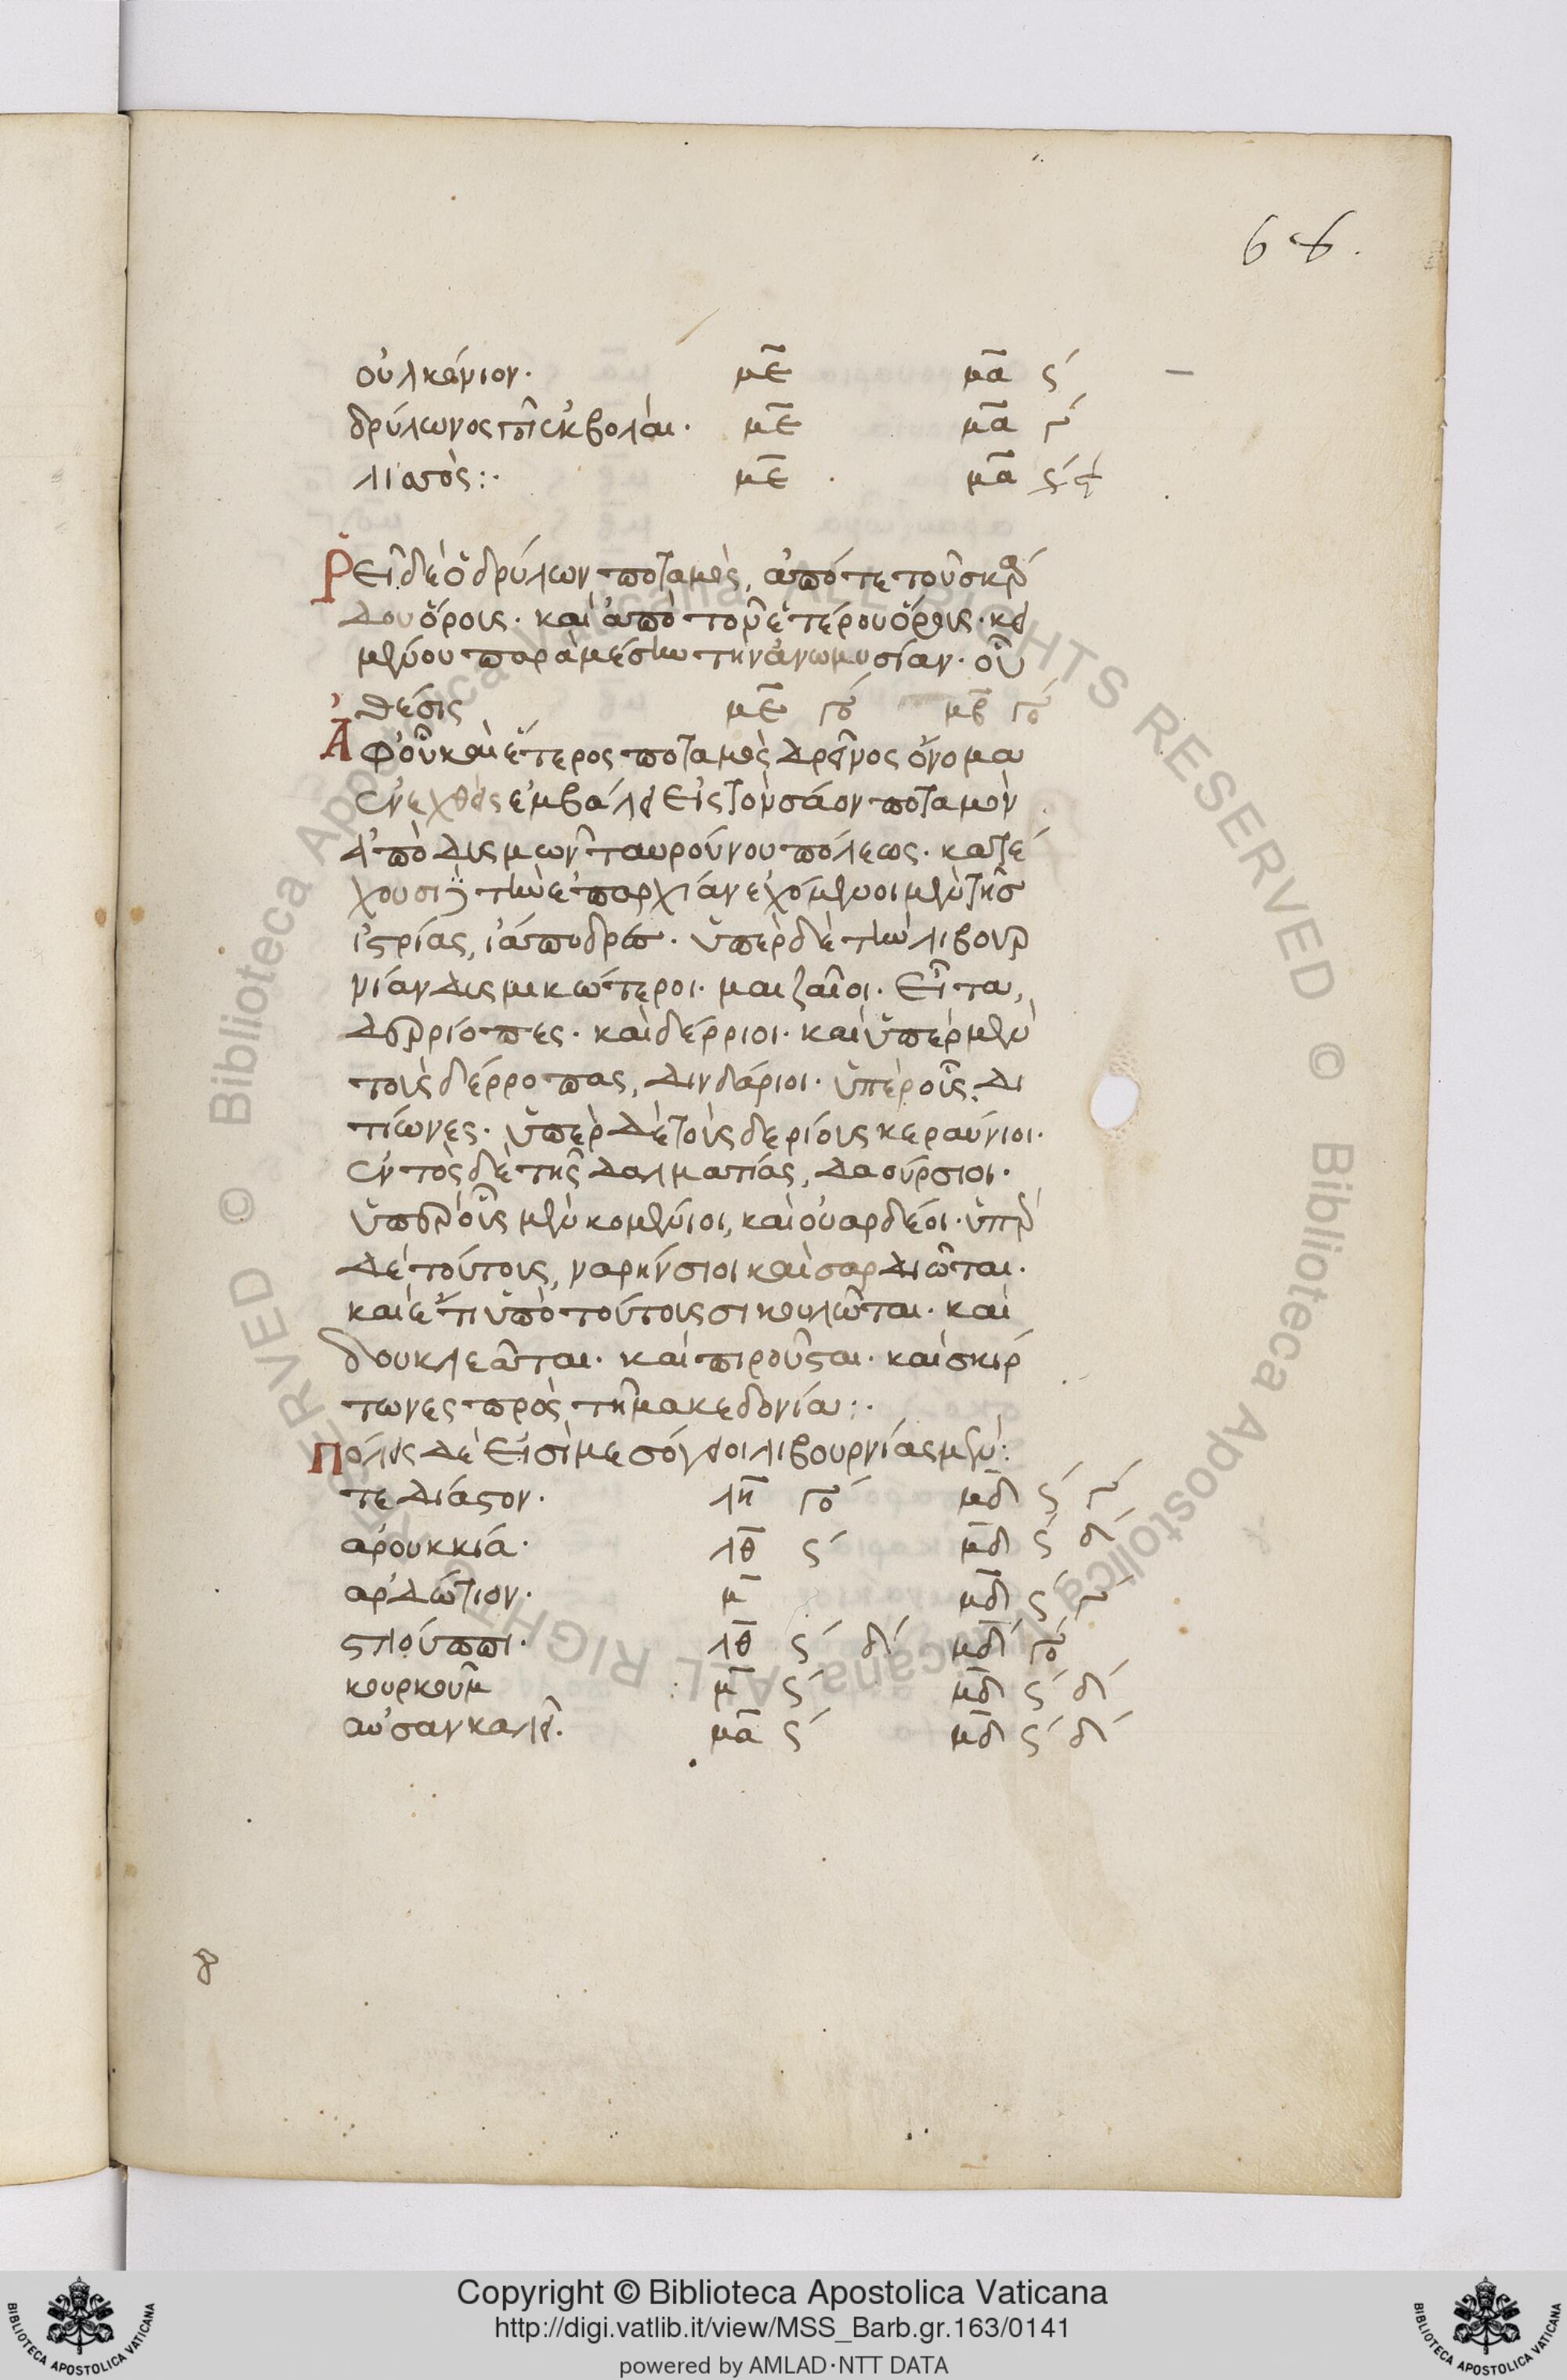 66.
οὐλκάνιον· με̅ μα̅ ϛ΄
δρύλωνος π͂ ἐκβολαὶ· με̅ μα̅ γ΄
λισσὸς:· με̅ μα̅
Ῥεῖ δὲ ὁ δρύλων ποταμὸς, ἀπό τε τοῦ σκάρ
δου ὄρους· καὶ ἀπὸ τοῦ ἑτέρου ὄρους· κει
μένου παρὰ μέσην τὴν ἄνω μυσίαν· οὗ
θέσις με̅ γο΄ μβ̅ γο΄
Ἀφ' οὗ καὶ ἕτερος ποταμὸς δρεῖνος ὄνομα
ἐνεχθεὶς ἐμβάλει εἰς τὸν σάον ποταμὸν
ἀπὸ δυσμῶν ταυρούνου πόλεως· κατέ
χουσι δὲ τὴν ἐπαρχίαν ἐχόμενοι μὲν τῆς
ἰστρίας, ἰάπυδες· ὑπὲρ δὲ τὴν λιβουρ
νίαν δυσμικώτεροι· μαιζαῖοι· εἶτα,
δερρίοπες· καὶ δέρριοι· καὶ ὑπὲρ μὲν
τοὺς δέρροπας, δινδάριοι· ὑπὲρ οὓς δι
τίωνες· ὑπὲρ δὲ τοὺς δερίους κεραύνιοι·
ἐντὸς δὲ τῆς δαλματίας, δαούρσιοι·
ὑπὲρ οὓς μὲν κομένιοι, καὶ οὐαρδέοι· ὑπὲρ
δὲ τούτους, ναρήνσιοι καὶ σαρδιῶται·
καὶ ἔτι ὑπὸ τούτους σικουλῶται· καὶ
δουκλεᾶται· καὶ πιροῦσται· καὶ σκίρ
τωνες πρὸς τῆ μακεδονία:·
Πόλεις δὲ εἰσὶ μεσόγειοι λιβουρνίας μὲν:
τεδιάστον· λη̅ γο΄ μδ̅ ϛ΄ γ΄
ἀρουκκιά· λθ̅ ϛ΄ μδ̅ ϛ΄ δ΄
ἀρδώτιον· μ̅ μδ̅ ϛ΄ γ΄
στλούππι· λθ̅ ϛ΄ δ΄ μδ̅ γο΄
κουρκοῦμ μ̅ ϛ΄ μδ̅ ϛ΄ δ΄
αὐσανκαλει· μα̅ ϛ΄ μδ̅ ϛ΄ δ΄
8
Copyright © Biblioteca Apostolica Vaticana
http://digi.vatlib.it/view/MSS_Barb.gr.163/0141
powered by AMLAD·NTT DATA